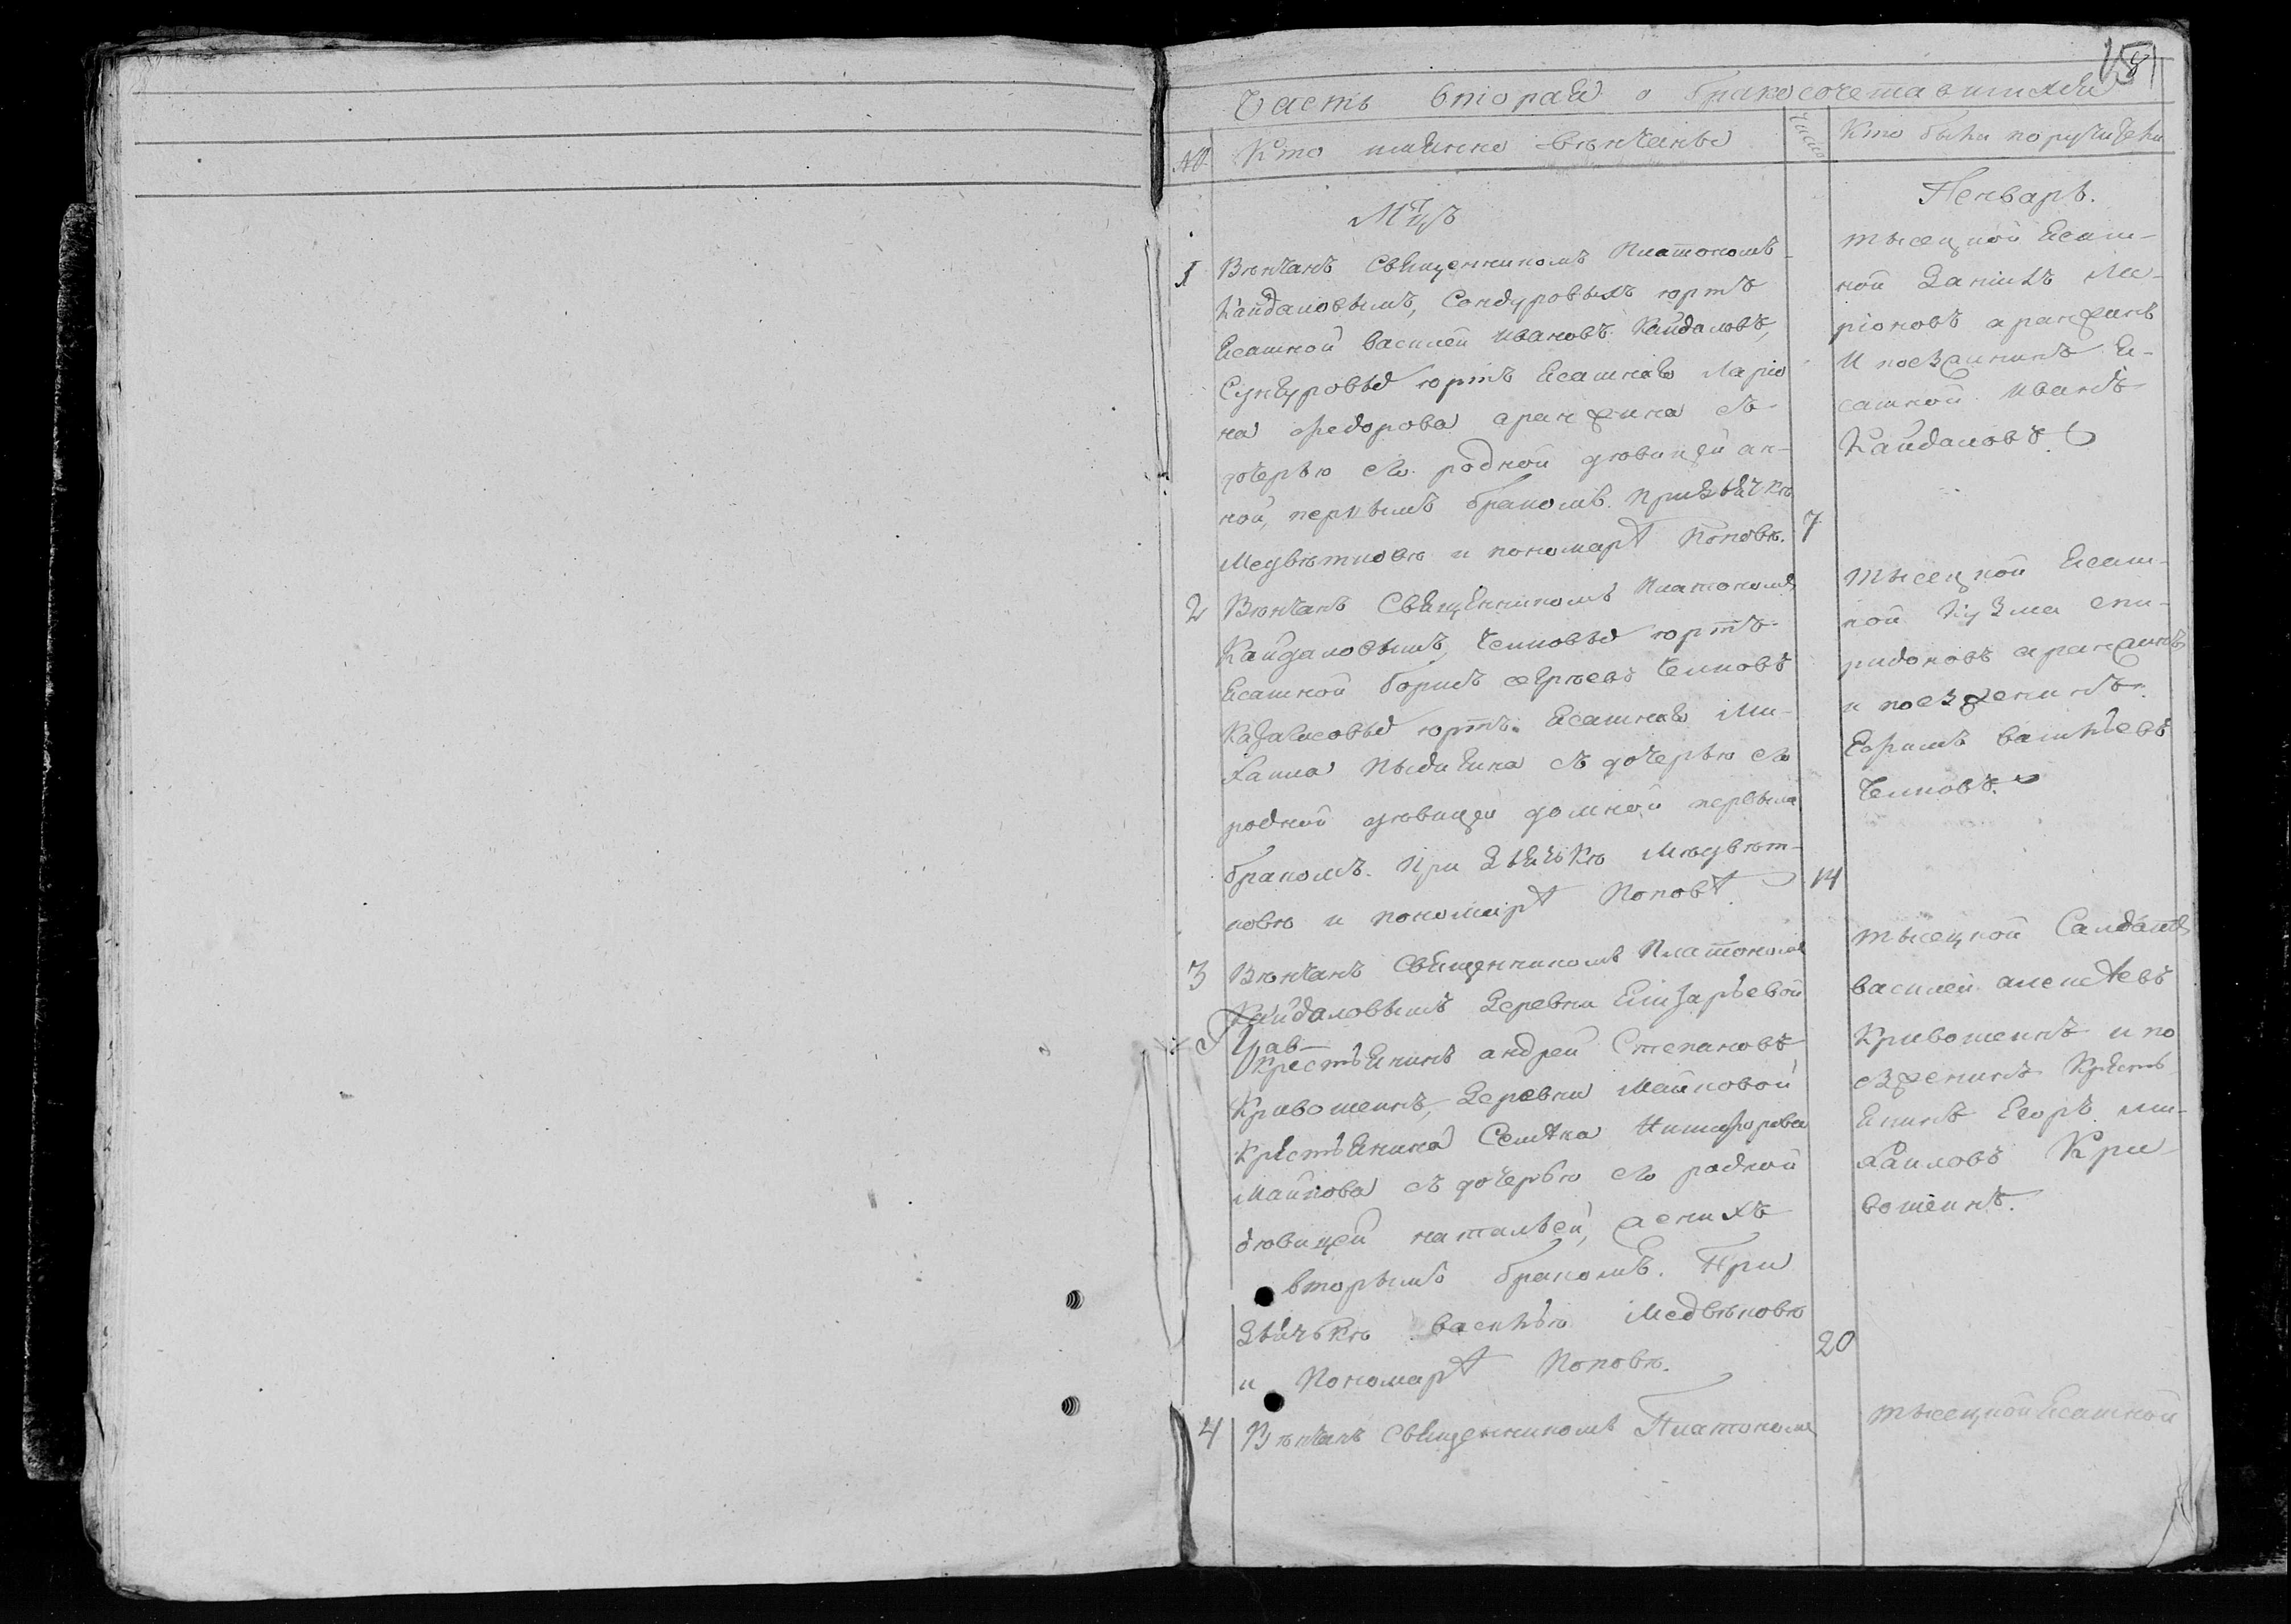 Часть вторая о бракосочетавшихся
№ Кто имянно венчаны Число Кто были поручители
Мцъ Генварь.
1 Венчанъ Священникомъ Платономъ
Кайдаловымъ, Сондуровыхъ юртъ
Ясашной Василей Ивановъ Кайдаловъ,
юртъ Ясашнаго Ларио
на Федорова аранжина съ
дочерью его родной девицей ан-
ной, первымъ бракомъ. При дьячке
Медветкове и пономаре Попове. 7
тысецкой Ясаш-
ной Данилъ Ла-
рионовъ аранжинъ
и поезжининъ Я-
сашной Иванъ
Кайдаловъ.
2 Венчанъ Священникомъ Платономъ
Кайдаловымъ, Чепковы юртъ
Ясашной Борисъ Сергеевъ Чепковъ
юртъ Ясашнаго Ми-
хаила съ дочерью его
родной девицей домной первымъ
бракомъ. При дьячьке Медвет-
кове и пономаре Попове. 14
тысецкой Ясаш-
ной Кузма спи-
ридоновъ аранжинъ
и поезженинъ
Ефимъ Васильевъ
Чепковъ.
3 Венчанъ Священникомъ Платономъ
Кайдаловымъ Деревни Елизарьевой
Крестьянинъ андрей Степановъ
Кривошеинъ, Деревни Майковой
Крестьянина Никифорова
Майкова съ дочерью его родной
девицей натальей, женихъ
вторымъ бракомъ. При
дьячьке Василью Медвекове
и Пономаре Попове. 20
тысецкой Салдатъ
Василей алексеевъ
Кривошеинъ и по
езженинъ Кресть
янинъ Егоръ ми-
хаиловъ Кри
вошеинъ.
4 Венчанъ Священникомъ Платономъ
тысецкой Ясашной